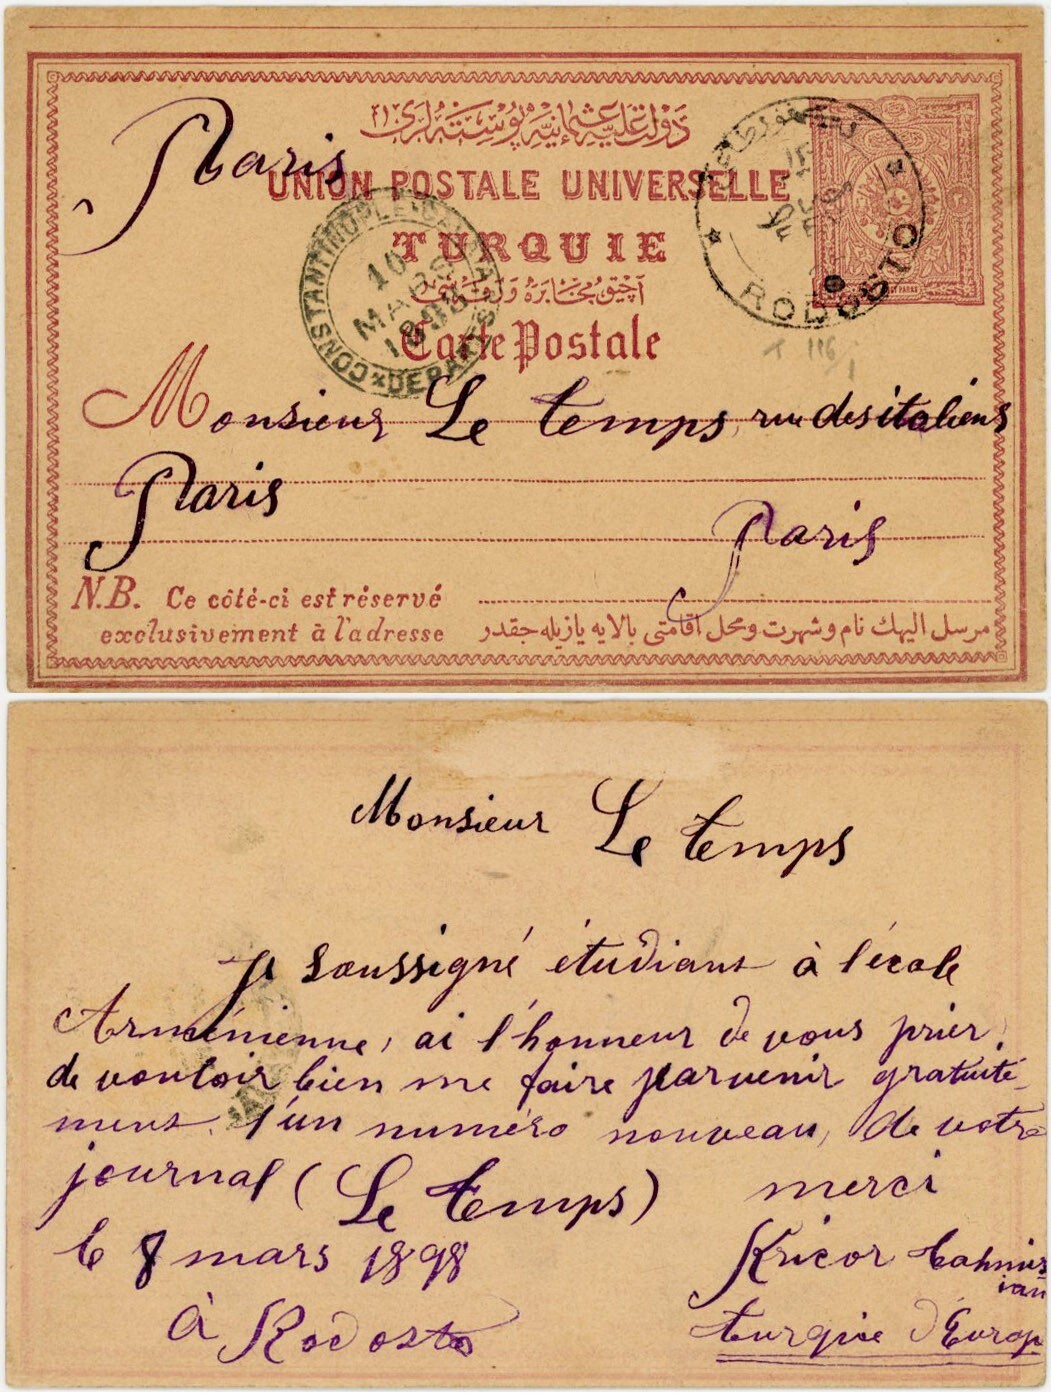 دولت علیهٔ عثمانیه پوسته‌لری
Paris
UNION POSTALE UNIVERSELLE
TURQUIE
آچیق مخابره ورقه‌سی
Carte Postale
CONSTANTINOPLE-GALATA
10
MARS
1898
DEPART
RODOSTO
T. 116
Monsieur Le temps, rue des italiens
Paris
Paris
N.B. Ce côté-ci est réservé
exclusivement à l'adresse
مرسل الیهك نام و شهرت و محل اقامتی بالایه یازیله جقدر
Monsieur Le temps
Je soussigné étudiant à l'école
Arménienne, ai l'honneur de vous prier,
de vouloir bien me faire parvenir gratuite-
ment, l'un numéro nouveau, de votre
journal (Le temps) merci
le 8 mars 1898
à Rodosto
Kricor tahmis
ian
turquie d'Europ